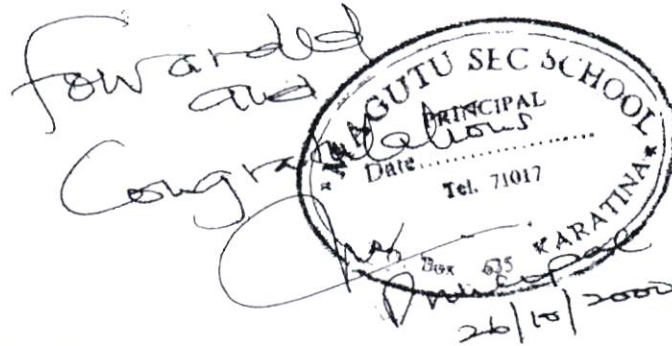 Fowarded
and
Congratulations
MAGUTU SEC SCHOOL
PRINCIPAL
Date..................
Tel. 71017
Box 635
*KARATINA*
Principal
26/10/2000